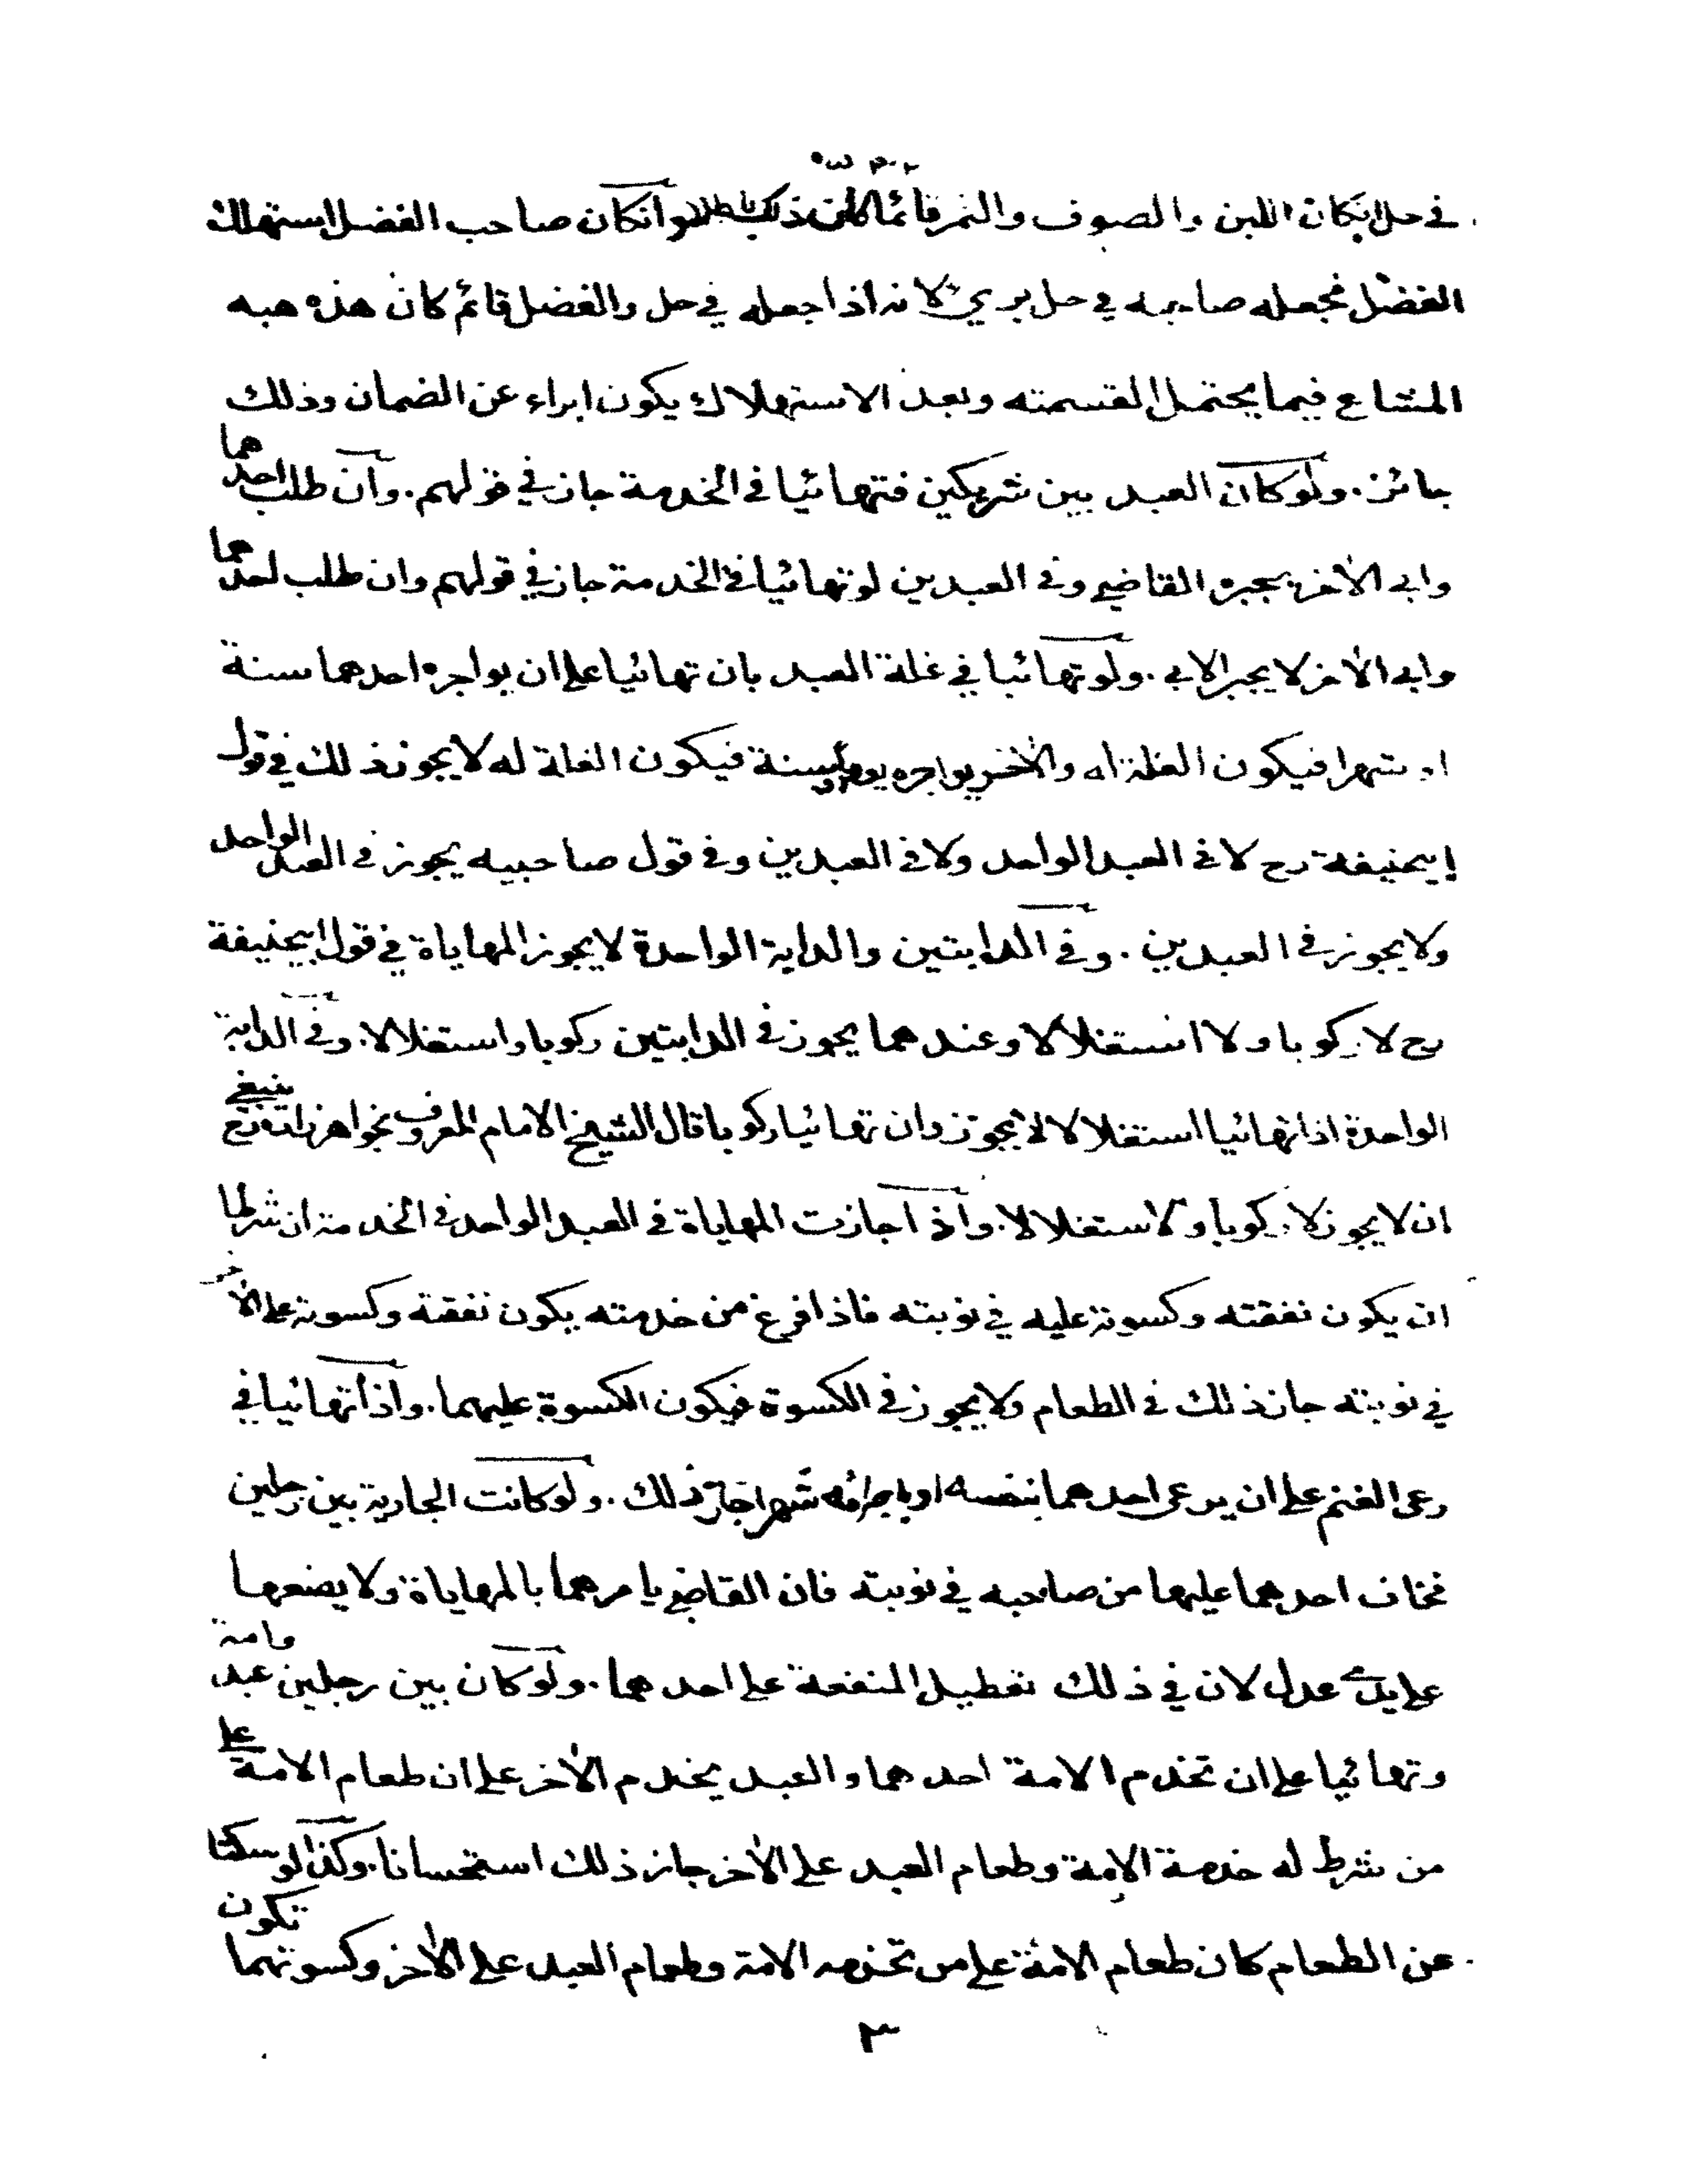 في حل ان كان اللبن والصوف والثمر قائما كان ذلك باطلا وانكان صاحب الفضل استهلك
الفضل فجعله صاحبه في حل بري لانه اذا جعله في حل والفضل قائم كان هذه هبه
المشاع فيما يحتمل القسمته وبعد الاستهلاك يكون ابراء عن الضمان وذلك
جائز. ولو كان العبد بين شريكين فتهائيا في الخدمة جاز في قولهم. وان طلب احدهما
وابى الآخر يجبره القاضي وفي العبدين لو تهائيا في الخدمة جاز في قولهم وان طلب احدهما
وابى الآخر لا يجبر الابي. ولو تهائيا في غلة العبد بان تهائيا على ان يواجره احدهما سنة
او شهرا فيكون الغلة له والآخر يواجره سنة فيكون الغلة له لا يجوز ذلك في قول
ابيحنيفة رح لا في العبد الواحد ولا في العبدين وفي قول صاحبيه يجوز في العبد الواحد
ولا يجوز في العبدين. وفي الدابتين والدابة الواحدة لا يجوز المهاياة في قول ابيحنيفة
رح لا ركوبا ولا استغلالا وعندهما يجوز في الدابتين ركوبا واستغلالا. وفي الدابة
الواحدة اذا تهائيا استغلالا لا يجوز وان تهائيا ركوبا قال الشيخ الامام المعروف بخواهر زاده رح ينبغي
ان لا يجوز لا ركوبا ولا استغلالا. واذا جازت المهاياة في العبد الواحد في الخدمة ان شرطا
ان يكون نفقته وكسوته عليه في نوبته فاذا فرغ من خدمته يكون نفقة وكسوته على الآخر
في نوبته جاز ذلك في الطعام ولا يجوز في الكسوة فيكون الكسوة عليهما. واذا تهائيا في
رعى الغنم على ان يرعى احدهما بنفسه او باجرائه شهرا جاز ذلك. ولو كانت الجارية بين رجلين
فخاف احدهما عليها من صاحبه في نوبته فان القاضي يامرهما بالمهاياة ولا يضعها
على يدي عدل لان في ذلك تعطيل المنفعة على احدهما. ولو كان بين رجلين عبد وامة
وتهائيا على ان تخدم الامة احدهما والعبد يخدم الآخر على ان طعام الامة على
من شرط له خدمة الامة وطعام العبد على الآخر جاز ذلك استحسانا. وكذا لو سكتا
عن الطعام كان طعام الامة على من تخدمه الامة وطعام العبد على الآخر وكسوتهما تكون
٣